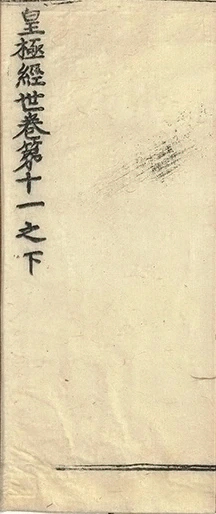 皇極經世卷第十一之下